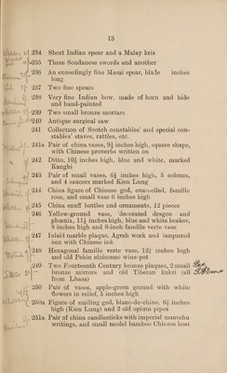 13
234 Short Indian spear and a Malay kris
235 Three Soudanese swords and another
236 An exceedingly fine Masai spear, blade inches
long
237 Two fine spears
238 Very fine Indian bow, made of horn and hide
and hand-painted
239 Two small bronze mortars
240 Antique surgical saw
241 Collection of Scotch constables' and special con-
stables' staves, rattles, etc.
241a Pair of china vases, 9½ inches high, square shape,
with Chinese proverbs written on
242 Ditto, 10½ inches high, blue and white, marked
Kanghi
243 Pair of small vases, 6½ inches high, 5 colours,
and 4 saucers marked Kien Lung
244 China figure of Chinese god, enamelled, famille
rose, and small vase 6 inches high
245 China snuff bottles and ornaments, 12 pieces
246 Yellow-ground vase, decorated dragon and
phœnix, 11½ inches high, blue and white beaker,
8 inches high and 8-inch famille verte vase
247 Inlaid marble plaques, Agrah work and lacquered
box with Chinese ink
248 Hexagonal famille verte vase, 12½ inches high
and old Pekin cloisonne wine-pot
249 Two Fourteenth Century bronze plaques, 2 small
bronze mirrors and old Tibetan kukri (all
from Lhasa)
250 Pair of vases, apple-green ground with white
flowers in relief, 5 inches high
250a Figure of smiling god, blanc-de-chine, 6½ inches
high (Kien Lung) and 2 old opium pipes
251a Pair of china candlesticks with imperial manchu
writings, and small model bamboo Chinese boat